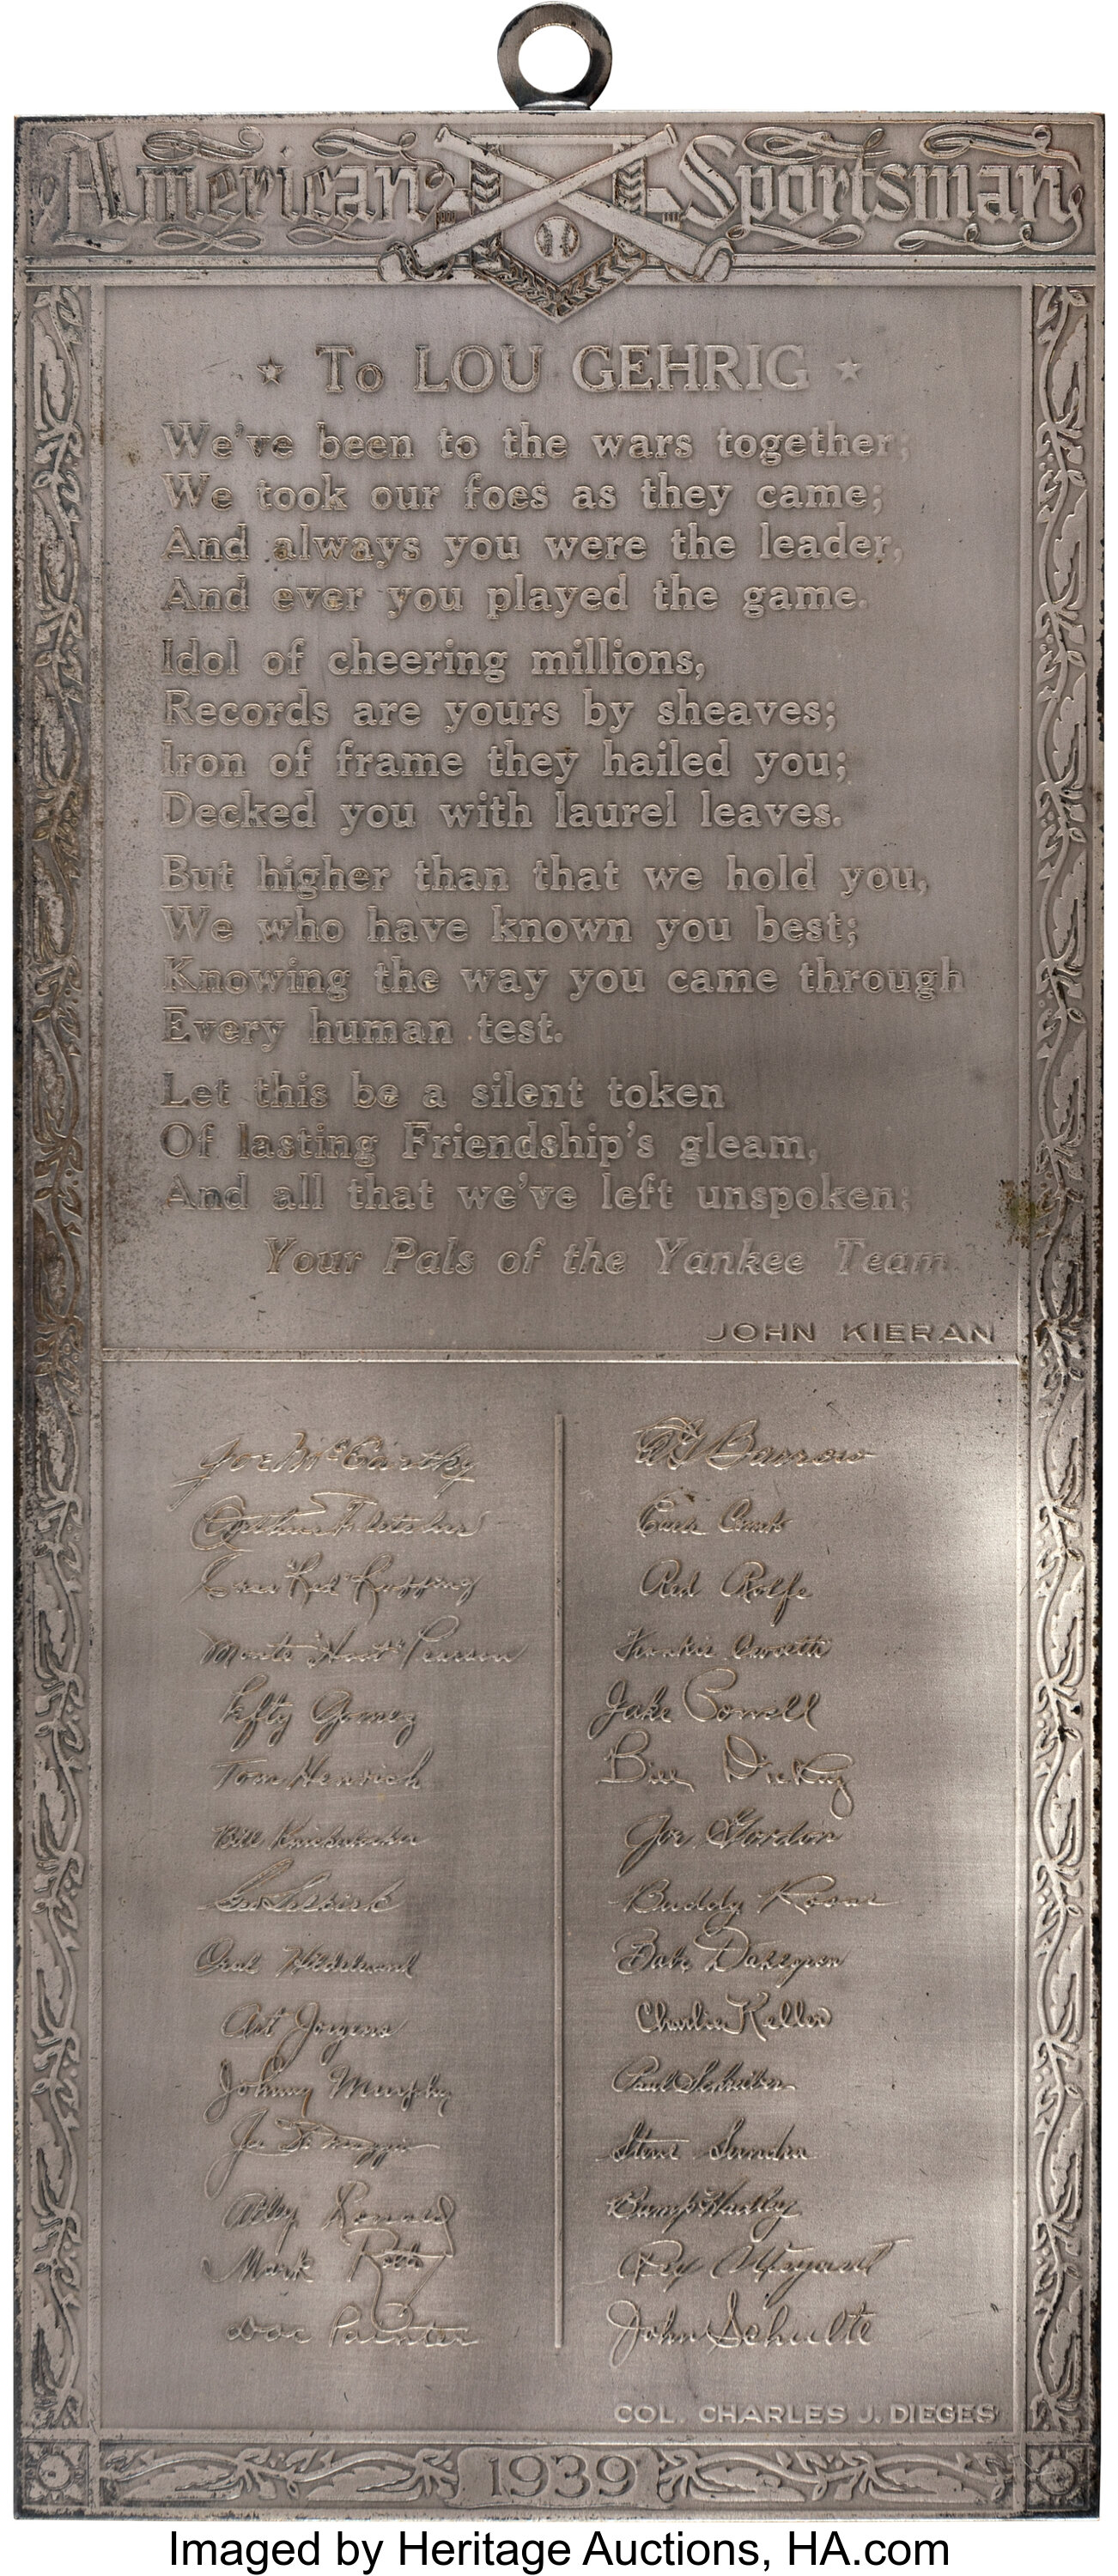 American Sportsman
★ To LOU GEHRIG ★
We've been to the wars together;
We took our foes as they came;
And always you were the leader,
And ever you played the game.
Idol of cheering millions,
Records are yours by sheaves;
Iron of frame they hailed you;
Decked you with laurel leaves.
But higher than that we hold you,
We who have known you best;
Knowing the way you came through
Every human test.
Let this be a silent token
Of lasting Friendship's gleam,
And all that we've left unspoken;
Your Pals of the Yankee Team.
JOHN KIERAN
Joe McCarthy
Arthur Fletcher
"Red" Ruffing
Monte "Hoot" Pearson
Lefty Gomez
Tom Henrich
Bill Knickerbocker
Geo Selkirk
Oral Hildebrand
Art Jorgens
Johnny Murphy
Joe DiMaggio
Atley Donald
Mark Roth
Doc Painter
EG Barrow
Earle Combs
Red Rolfe
Frankie Crosetti
Jake Powell
Bill Dickey
Joe Gordon
Buddy Rosar
Babe Dahlgren
Charlie Keller
Paul Schreiber
Steve Sundra
Bump Hadley
Rex Weyant
John Schulte
COL. CHARLES J. DIEGES
1939
Imaged by Heritage Auctions, HA.com